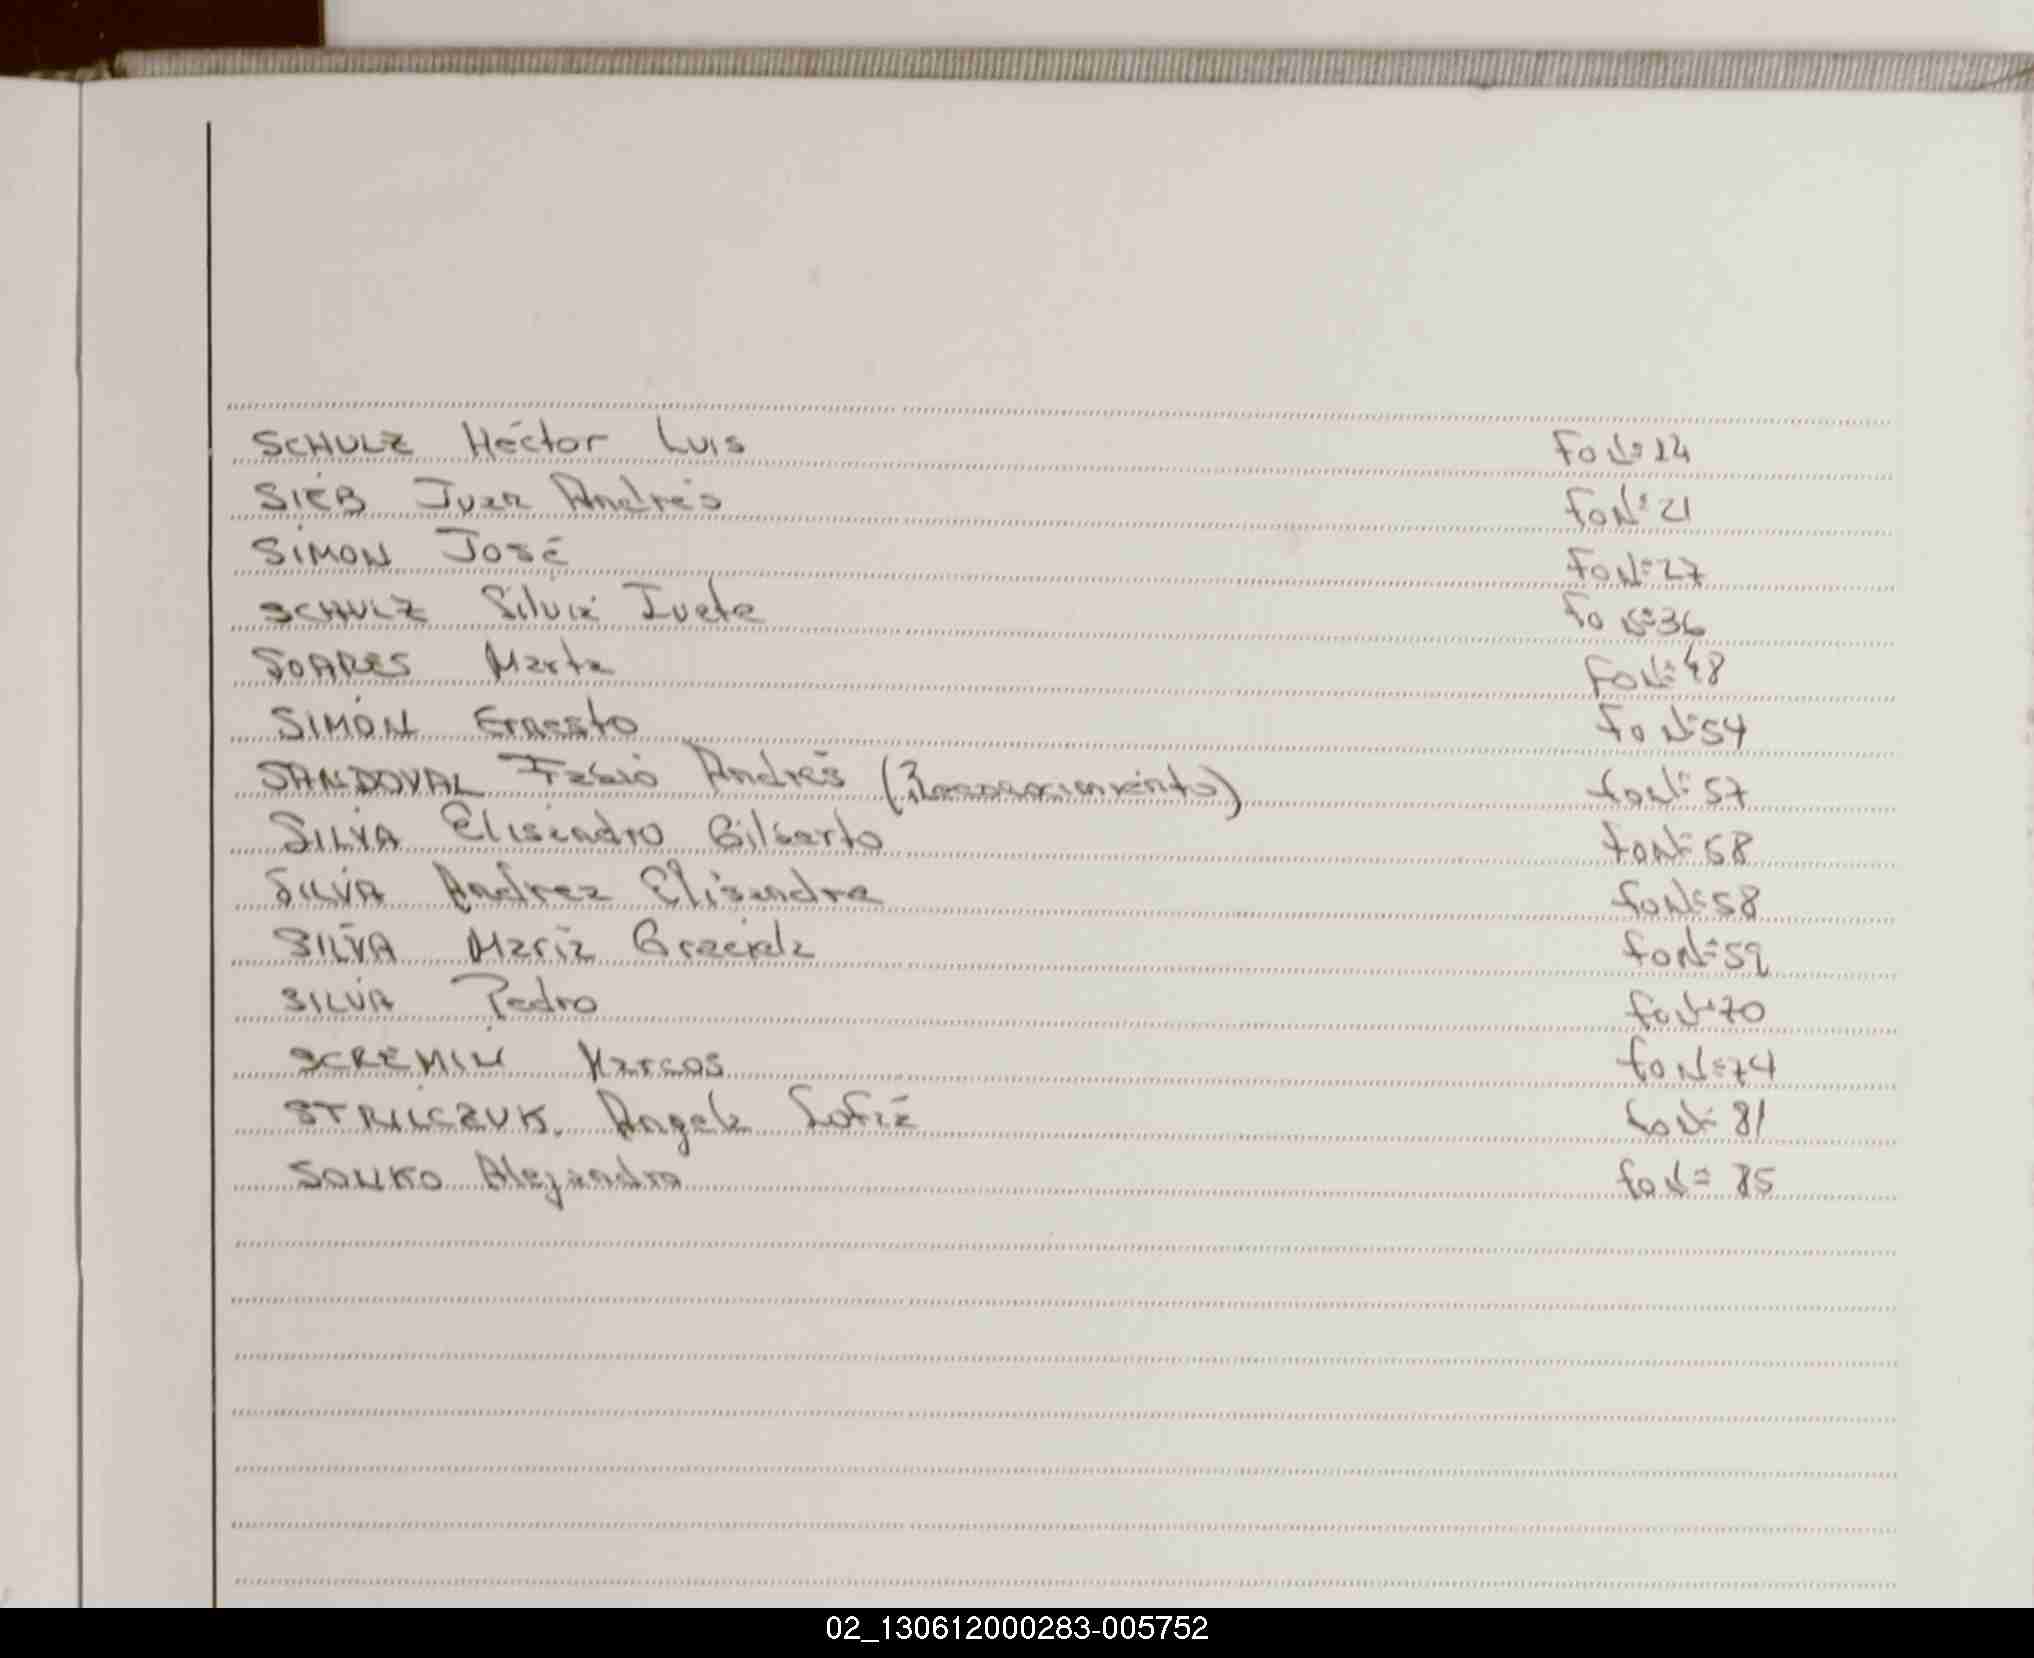 SCHULZ Héctor Luis Fo Nº 14
SIEB Juan Andrés Fo Nº 21
SIMON José Fo Nº 27
SCHULZ Silvia Ivete Fo Nº 36
SOARES Marta Fo Nº 48
SIMÓN Ernesto Fo Nº 54
SANDOVAL Fabio Andrés (Reconocimiento) fo Nº 57
SILVA Elisandro Gilberto fo Nº 58
SILVA Andrea Elisandra fo Nº 58
SILVA María Graciela fo Nº 59
SILVA Pedro fo Nº 70
SCREMIN Marcos fo Nº 74
STRILCZUK Angela Sofía fo Nº 81
SONKO Alejandro fo Nº 85
02_130612000283-005752